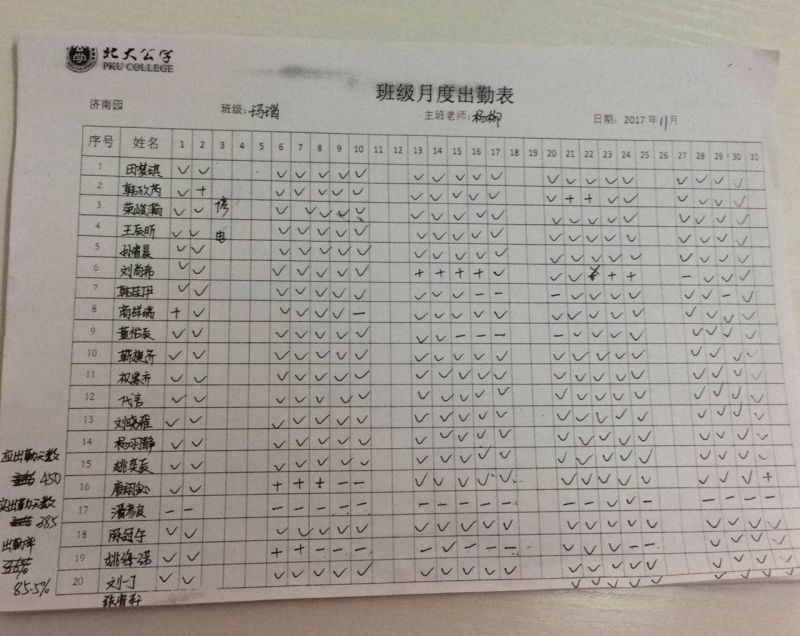 北大公学
PKU COLLEGE
班级月度出勤表
济南园 班级：玛瑙 主班老师：杨柳 日期：2017年11月
序号 姓名 1 2 3 4 5 6 7 8 9 10 11 12 13 14 15 16 17 18 19 20 21 22 23 24 25 26 27 28 29 30 31
1 田梦琪 ✓ ✓ ✓ ✓ ✓ ✓ ✓ ✓ ✓ ✓ ✓ ✓ ✓ ✓ ✓ ✓ ✓ ✓ ✓ ✓ ✓
2 韩欣芮 ✓ + ✓ ✓ ✓ ✓ ✓ ✓ ✓ ✓ ✓ ✓ ✓ + + ✓ ✓ ✓ ✓ ✓ ✓
3 荣峻瀚 ✓ ✓ 停 ✓ ✓ ✓ ✓ ✓ ✓ ✓ ✓ ✓ ✓ ✓ ✓ ✓ ✓ ✓ ✓ ✓ ✓ ✓
4 王辰昕 ✓ ✓ 电 ✓ ✓ ✓ ✓ ✓ ✓ ✓ ✓ ✓ ✓ ✓ ✓ ✓ ✓ ✓ ✓ ✓ ✓ ✓
5 孙睿晨 ✓ ✓ ✓ ✓ ✓ ✓ ✓ ✓ ✓ ✓ ✓ ✓ ✓ ✓ ✓ ✓ ✓ ✓ ✓ ✓ ✓
6 刘尚希 ✓ ✓ ✓ ✓ ✓ ✓ ✓ + + + + ✓ ✓ ✓ + + − ✓ ✓ ✓
7 韩佳伊 ✓ ✓ ✓ ✓ ✓ ✓ ✓ ✓ ✓ ✓ − − − ✓ ✓ ✓ ✓ ✓ ✓ − ✓
8 商祥瑞 + ✓ ✓ ✓ ✓ ✓ − ✓ ✓ ✓ ✓ ✓ ✓ ✓ ✓ ✓ ✓ ✓ ✓ ✓ ✓
9 董怡辰 ✓ ✓ ✓ ✓ ✓ ✓ ✓ ✓ ✓ − − − − ✓ ✓ ✓ ✓ ✓ ✓ ✓ ✓
10 ✓ ✓ ✓ ✓ ✓ ✓ ✓ ✓ ✓ ✓ ✓ ✓ ✓ ✓ ✓ ✓ ✓ ✓ ✓ ✓ ✓
11 ✓ ✓ ✓ ✓ ✓ ✓ ✓ ✓ ✓ ✓ ✓ ✓ ✓ ✓ ✓ ✓ ✓ ✓ ✓ ✓ ✓
12 代言 ✓ ✓ ✓ ✓ ✓ ✓ ✓ ✓ ✓ ✓ ✓ ✓ ✓ ✓ ✓ ✓ ✓ ✓ ✓ ✓ ✓
13 刘晓雅 ✓ ✓ ✓ ✓ ✓ ✓ ✓ ✓ ✓ ✓ ✓ ✓ ✓ ✓ ✓ ✓ ✓ ✓ ✓ ✓ ✓
14 杨羽静 ✓ ✓ ✓ ✓ ✓ ✓ ✓ ✓ ✓ ✓ ✓ ✓ ✓ ✓ ✓ ✓ ✓ ✓ ✓ ✓ ✓
15 姚奕辰 ✓ ✓ ✓ ✓ ✓ ✓ ✓ ✓ ✓ ✓ ✓ ✓ ✓ ✓ ✓ ✓ ✓ ✓ ✓ ✓ ✓
应出勤天数
450
16 ✓ ✓ + + + − − ✓ ✓ ✓ ✓ ✓ ✓ ✓ ✓ ✓ ✓ ✓ ✓ ✓ +
实出勤天数
385
17 潘彦良 − − − − − − − − − − − − − − ✓ ✓ − − − − −
18 ✓ ✓ ✓ ✓ ✓ ✓ ✓ ✓ ✓ ✓ ✓ ✓ ✓ ✓ ✓ ✓ ✓ ✓ ✓ ✓ ✓
出勤率
85.5%
19 ✓ ✓ + + − − − − ✓ − − − ✓ ✓ ✓ − − ✓ ✓ ✓ ✓
20 刘一丁 ✓ ✓ ✓ ✓ ✓ ✓ ✓ ✓ ✓ ✓ ✓ ✓ ✓ ✓ ✓ ✓ ✓ ✓ ✓ ✓ ✓
张睿轩 ✓ ✓ ✓ ✓ ✓ ✓ ✓ ✓ ✓